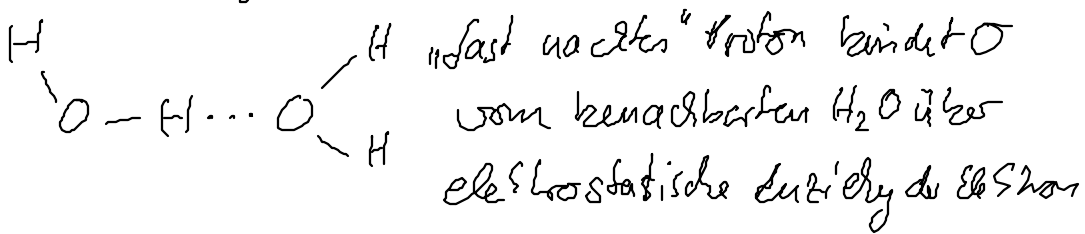 H
O — H ··· O
H
H
„fast nacktes“ Proton bindet O
vom benachbarten H₂O über
elektrostatische Anziehg der Elektron